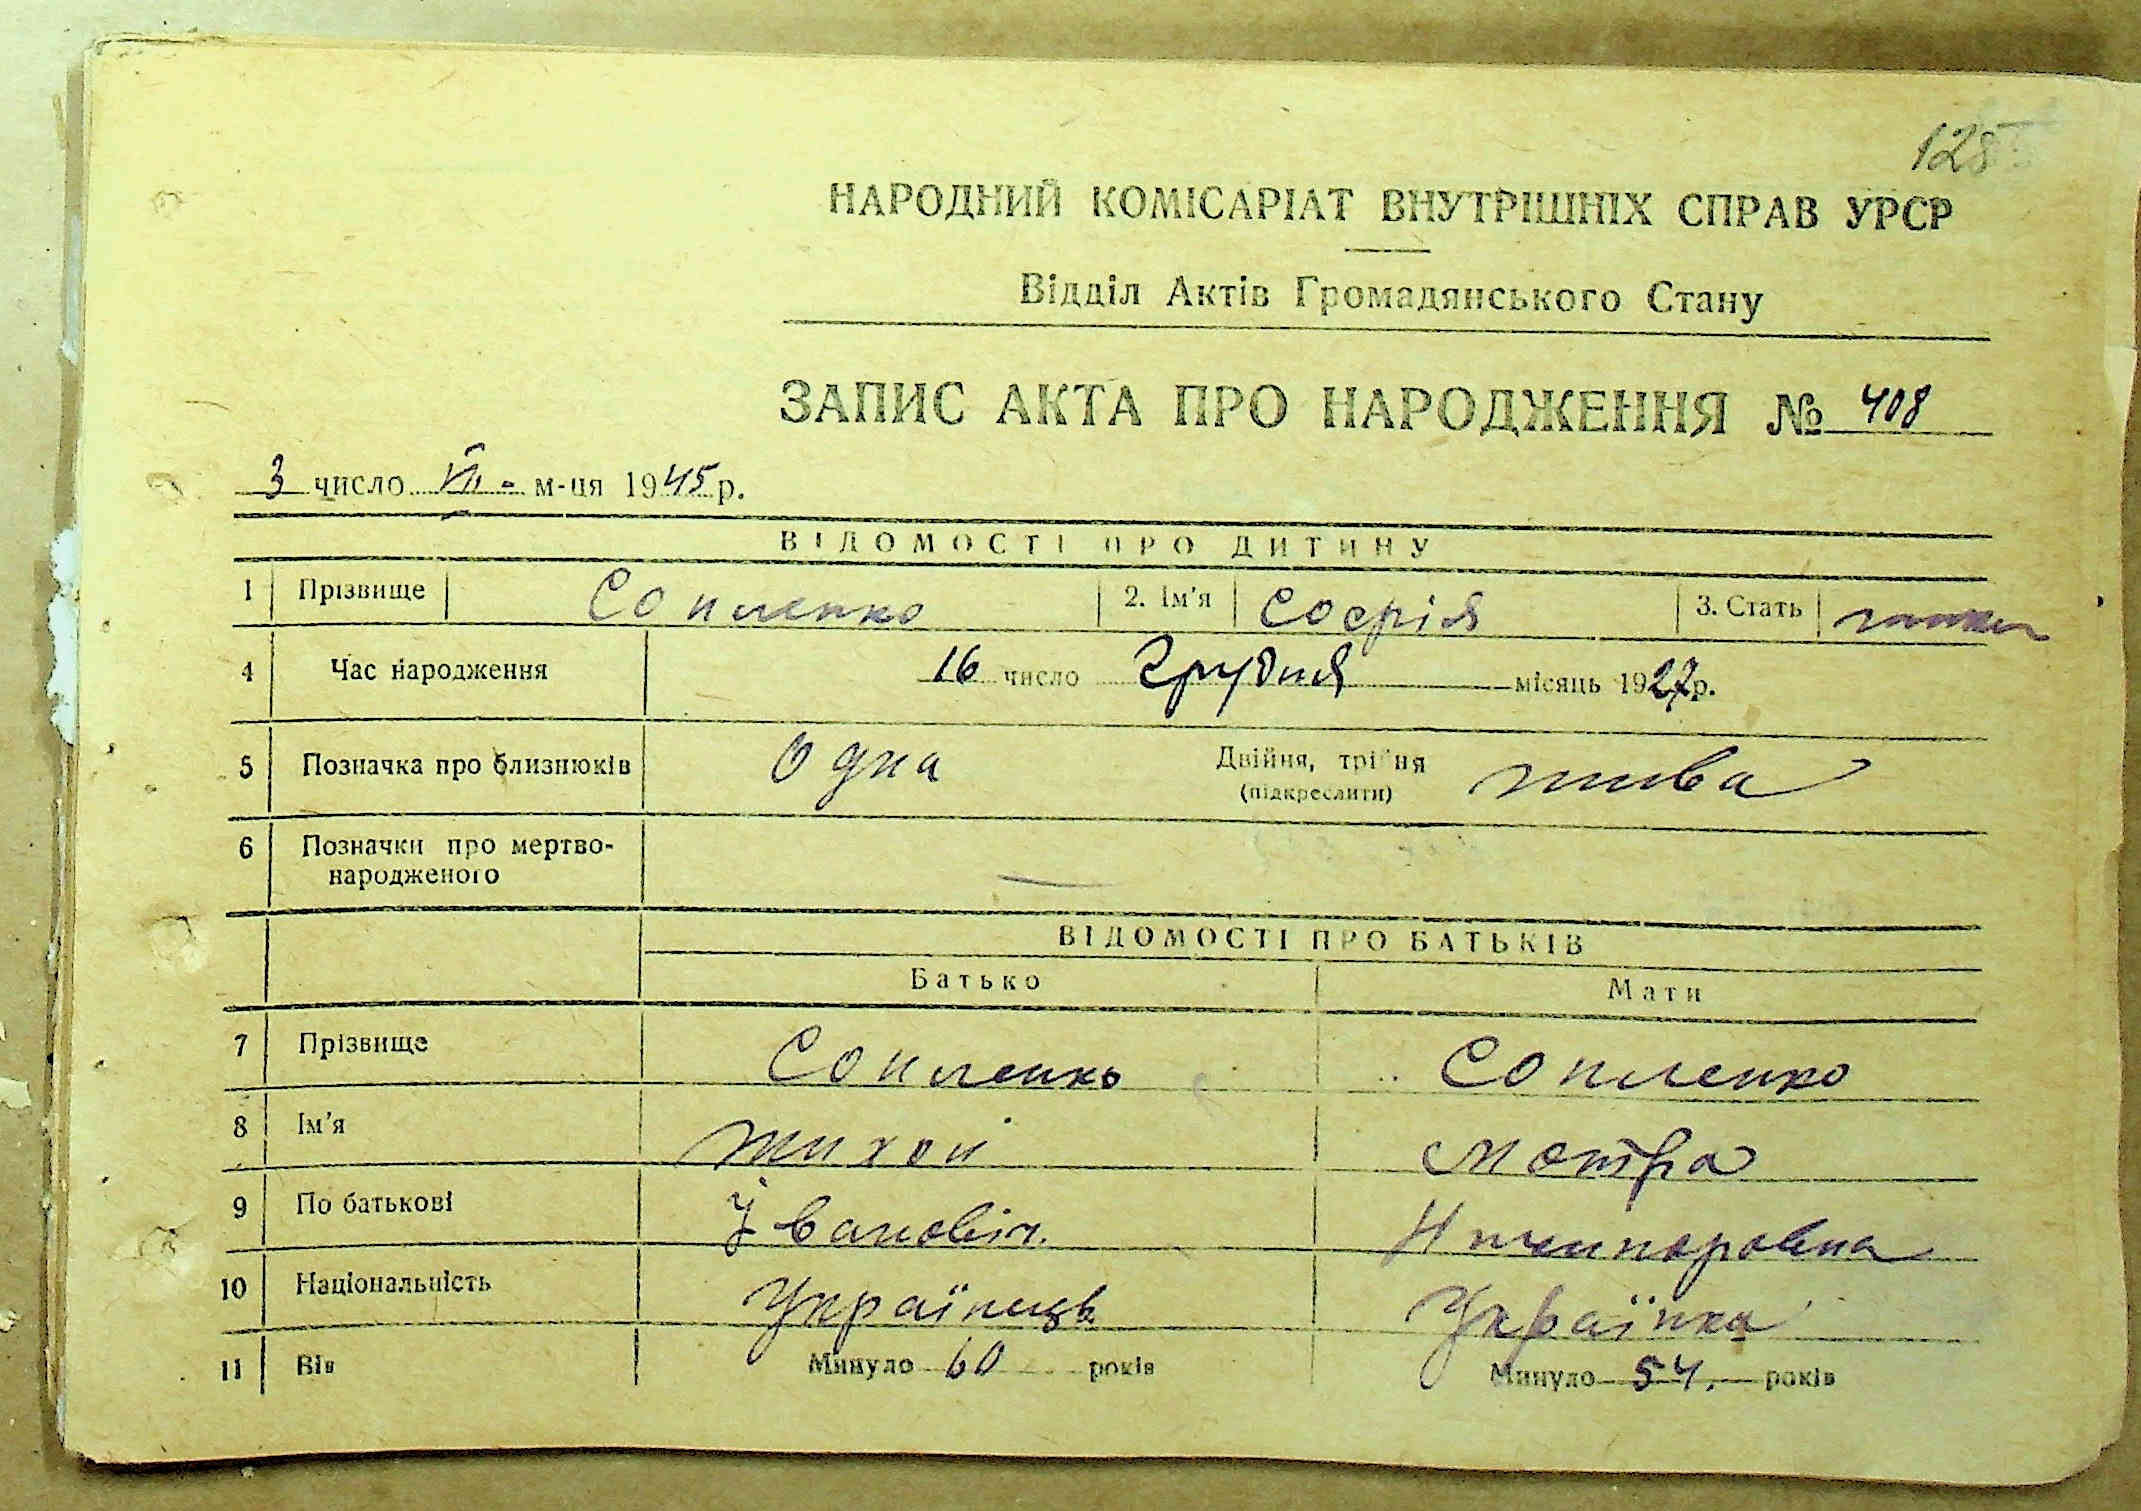 128
НАРОДНИЙ КОМІСАРІАТ ВНУТРІШНІХ СПРАВ УРСР
Відділ Актів Громадянського Стану
ЗАПИС АКТА ПРО НАРОДЖЕННЯ № 408
3 число VII - м-ця 1945 р.
ВІДОМОСТІ ПРО ДИТИНУ
1 Прізвище Сопиленко 2. Ім'я Софія 3. Стать
4 Час народження 16 число Грудня місяць 1927 р.
5 Позначка про близнюків Одна Двійня, трійня жива
(підкреслити)
6 Позначки про мертво-
народженого —
ВІДОМОСТІ ПРО БАТЬКІВ
Батько Мати
7 Прізвище Сопиленко Сопиленко
8 Ім'я Тихон Мотра
9 По батькові Іванович. Ничипоровна
10 Національність Українець Українка
11 Вів Минуло 60 років Минуло 54. років